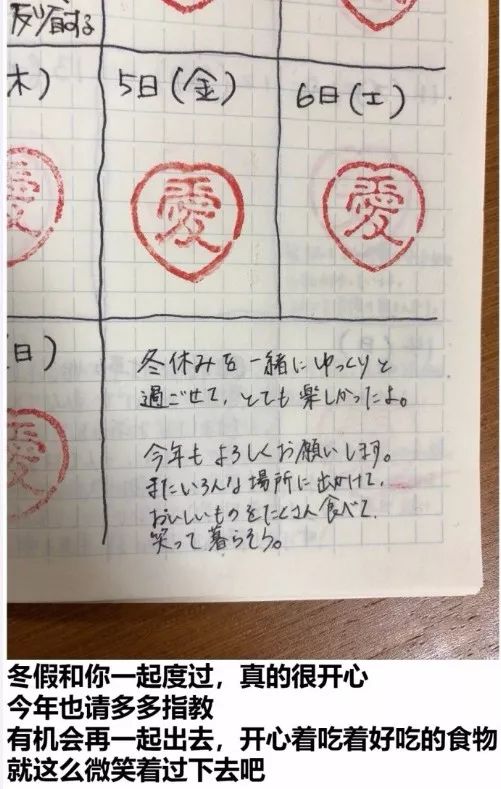 5日(金)
6日(土)
愛
愛
冬休みを一緒にゆっくりと
過ごせて、とても楽しかったよ。
今年もよろしくお願いします。
またいろんな場所に出かけて、
おいしいものをたくさん食べて、
笑って暮らそう。
冬假和你一起度过，真的很开心
今年也请多多指教
有机会再一起出去，开心着吃着好吃的食物
就这么微笑着过下去吧